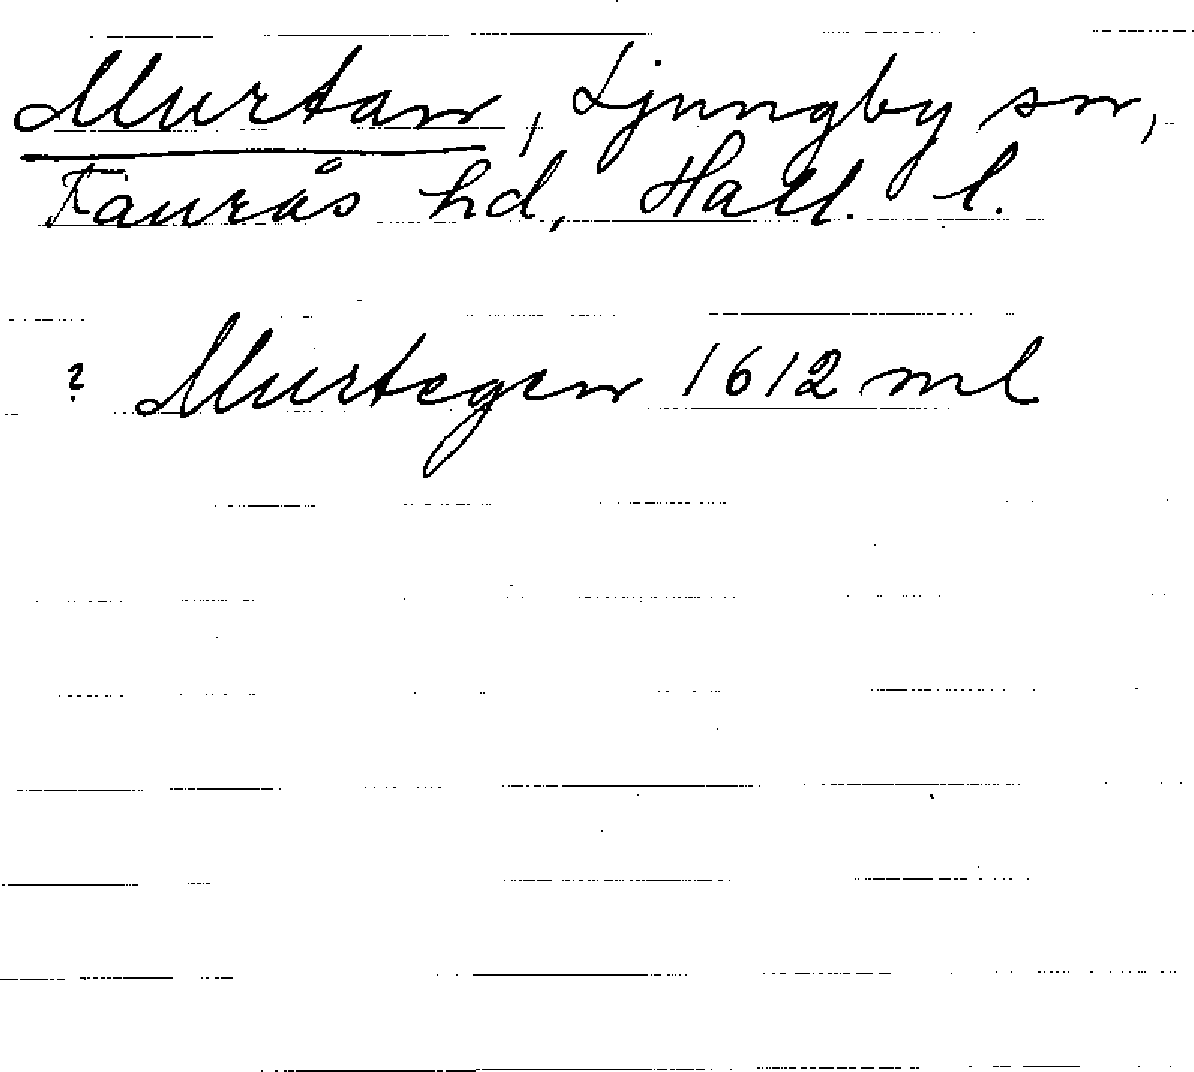 Murtan, Ljungby sn,
Faurås hd, Hall. l.
? Murtegen 1612 ml